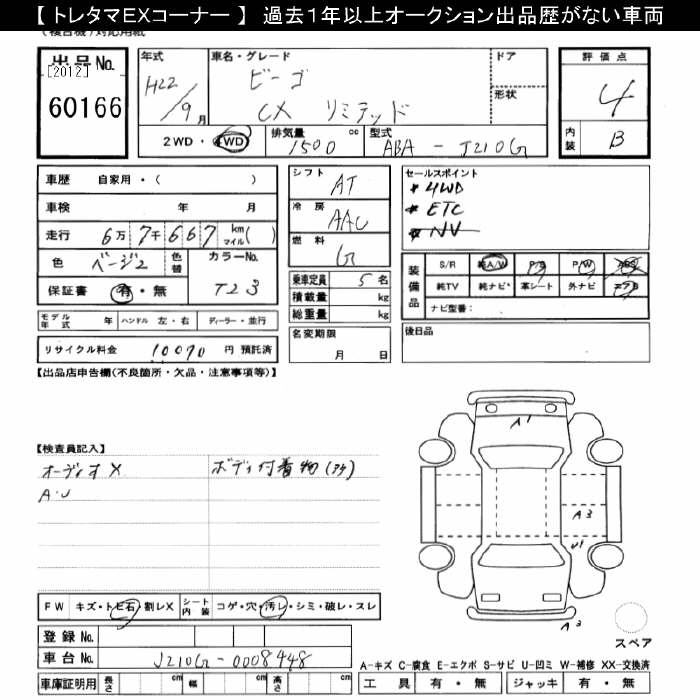 【 トレタマEXコーナー 】 過去1年以上オークション出品歴がない車両
(複合機)対応用紙
出品No. [2012] 60166
年式 H22/9月
車名・グレード ビーゴ CX リミテッド
ドア
形状
評価点 4
内装 B
2WD・4WD
排気量 1500 cc
型式 ABA - J210G
車歴 自家用・( )
車検 年 月
走行 6万7千667 km マイル( )
色 ベージュ2
色替
カラーNo. T23
保証書 有・無
シフト AT
冷房 AAC
燃料 G
セールスポイント
* 4WD
* ETC
* NV
乗車定員 5名
積載量 kg
総重量 kg
装備品 S/R 純A/W P/S P/W ABS
純TV 純ナビ 革シート 外ナビ エアB
ナビ型番:
モデル年式 年 ハンドル 左・右 ディーラー・並行
名変期限 月 日
後日品
リサイクル料金 10070 円 預託済
【出品店申告欄(不良箇所・欠品・注意事項等)】
【検査員記入】
オーディオX ボディ付着物(シケ)
A・U
A1
A3
U1
A3
FW キズ・トビ石・割レX
シート内装 コゲ・穴・汚レ・シミ・破レ・スレ
スペア
登録No.
車台No. J210G-0008448
A-キズ C-腐食 E-エクボ S-サビ U-凹ミ W-補修 XX-交換済
車庫証明用 長さ cm 幅 cm 高さ cm
工具 有・無 ジャッキ 有・無